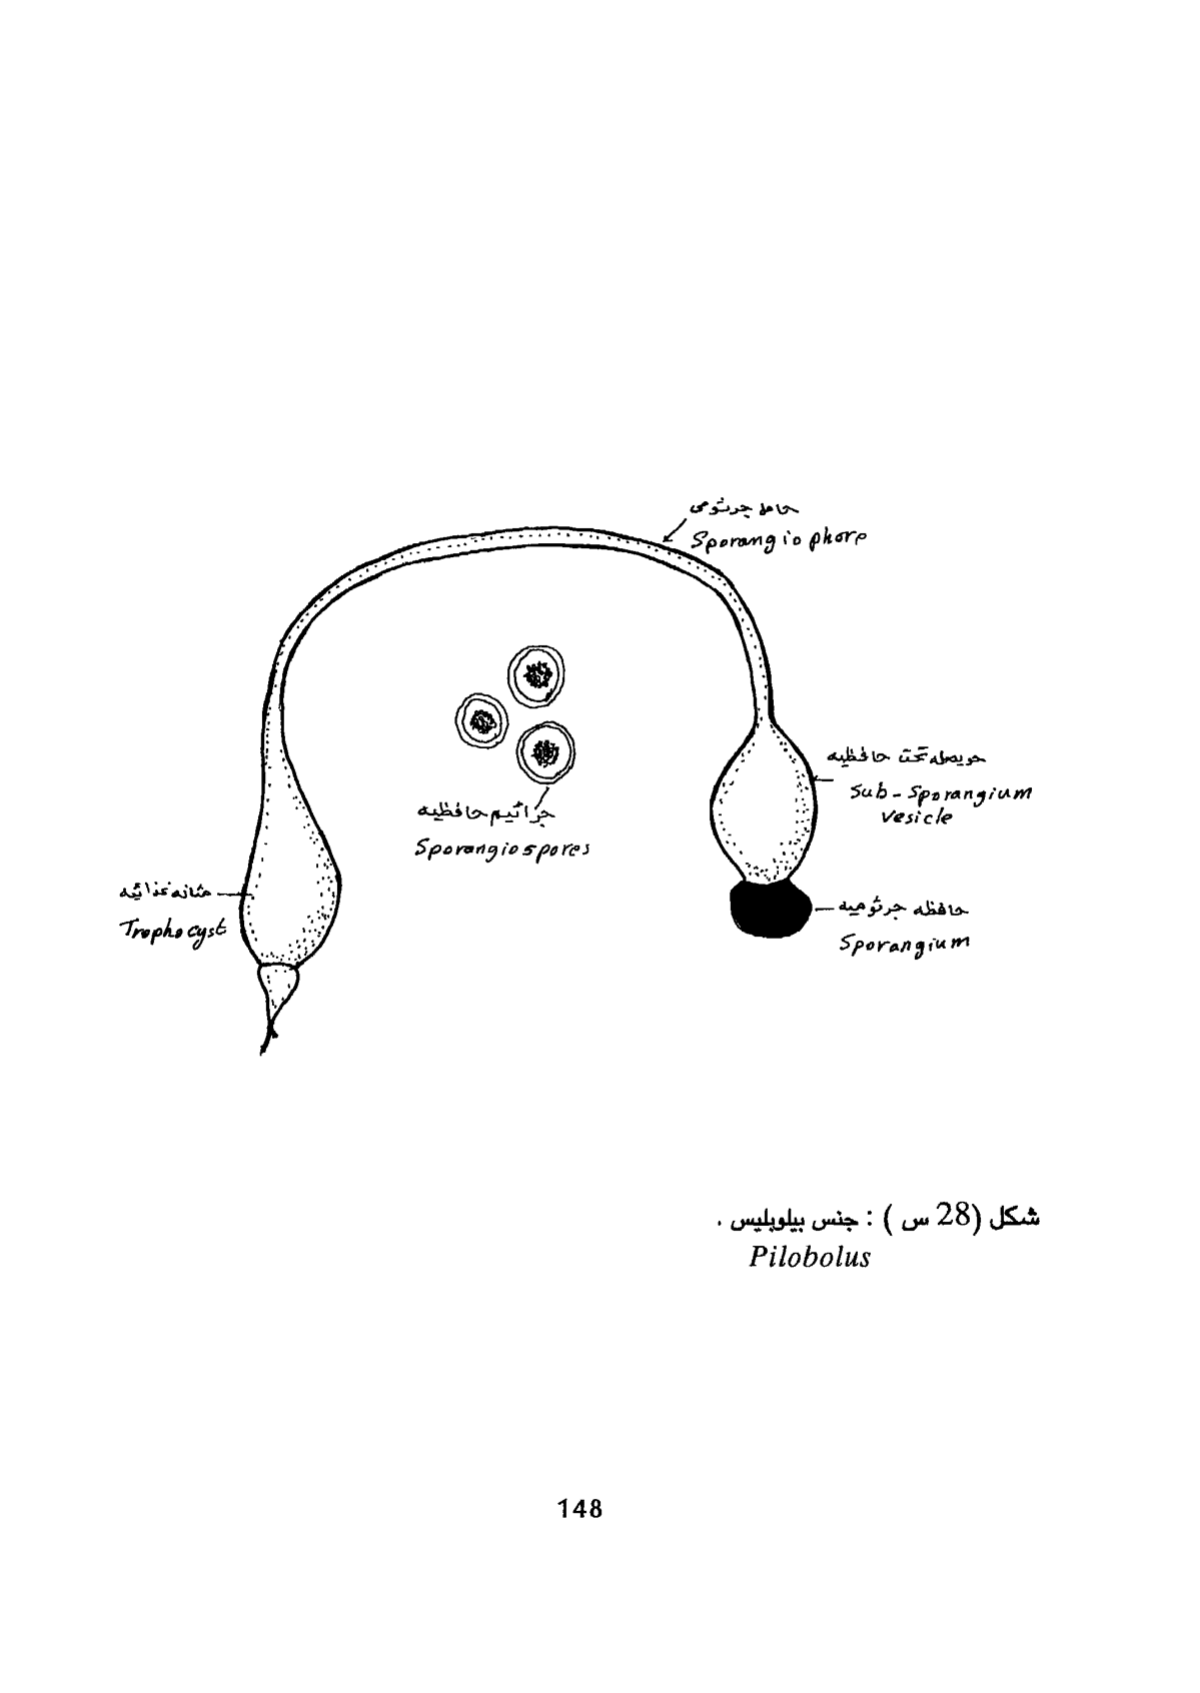 حامل جرثومي
Sporangiophore
حويصله تحت حافظيه
Sub-Sporangium
vesicle
جراثيم حافظيه
Sporangiospores
مثانه غذائيه
Trophocyst
حافظه جرثوميه
Sporangium
شكل (28 س ) : جنس بيلوبليس .
Pilobolus
148